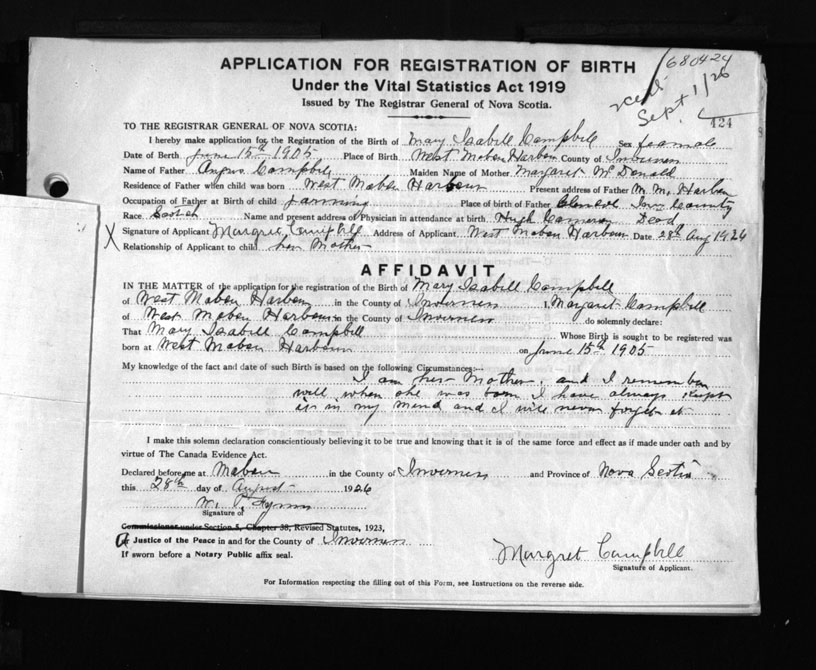 APPLICATION FOR REGISTRATION OF BIRTH
680424
Under the Vital Statistics Act 1919
Issued by The Registrar General of Nova Scotia.
Sept 1/26
424
TO THE REGISTRAR GENERAL OF NOVA SCOTIA:
I hereby make application for the Registration of the Birth of Mary Isabill Campbill Sex female
Date of Berth June 15th 1905 Place of Birth West Mabou Harbour County of Inverness
Name of Father Angus Campbill Maiden Name of Mother Margaret McDonald
Residence of Father when child was born West Mabou Harbour Present address of Father W. M. Harbou
Occupation of Father at Birth of child farming Place of birth of Father Inv. County
Race. Scotch Name and present address of Physician in attendance at birth. Hugh Cameron Dead
X Signature of Applicant Margret Campbill Address of Applicant West Mabou Harbour Date 28th Aug 1926
Relationship of Applicant to child her Mother
AFFIDAVIT
IN THE MATTER of the application for the registration of the Birth of Mary Isabill Campbill
of West Mabou Harbour in the County of Inverness I, Margaret Campbill
of West Mabou Harbour in the County of Inverness do solemnly declare:
That Mary Isabill Campbill Whose Birth is sought to be registered was
born at West Mabou Harbour on June 15th 1905
My knowledge of the fact and date of such Birth is based on the following Circumstances:—
I am her Mother. and I remember
will when she was born I have always kept
it in my mind and I will never forget it
I make this solemn declaration conscientiously believing it to be true and knowing that it is of the same force and effect as if made under oath and by
virtue of The Canada Evidence Act.
Declared before me at Mabou in the County of Inverness and Province of Nova Scotia
this 28th day of August 1926
W. P.
Signature of
Commissioner under Section 5, Chapter 38, Revised Statutes, 1923,
A Justice of the Peace in and for the County of Inverness
If sworn before a Notary Public affix seal.
Margret Campbill
Signature of Applicant.
For Information respecting the filling out of this Form, see Instructions on the reverse side.